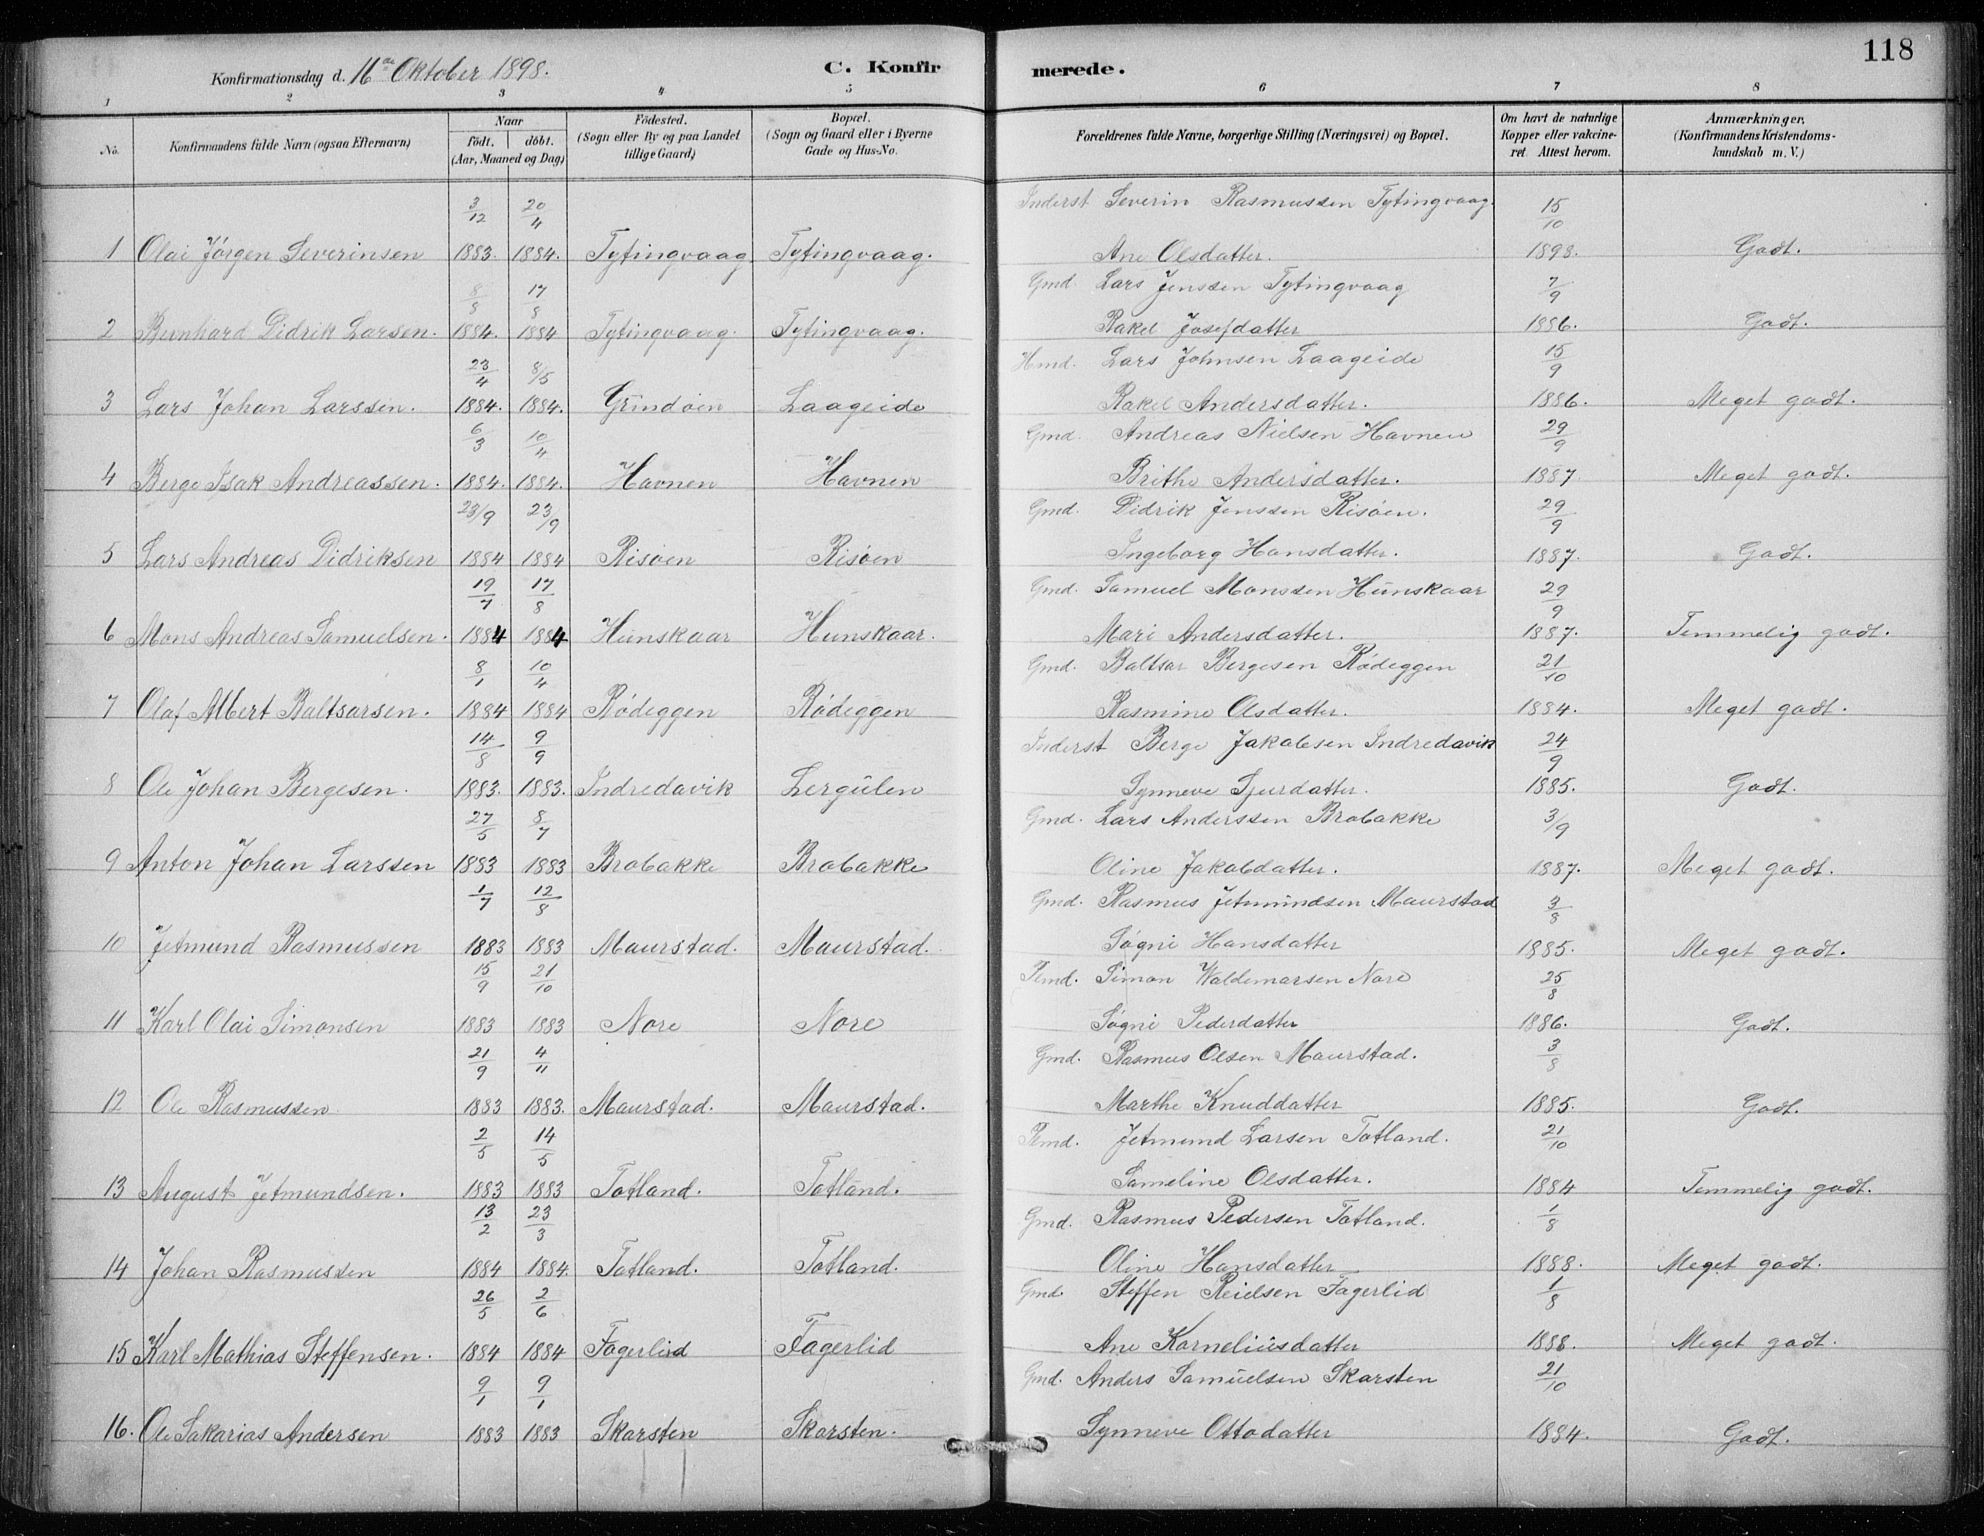 118
Konfirmationsdag d. 16de Oktober 1898. C. Konfirmerede.
1 2 3 4 5 6 7 8
No. Konfirmandens fulde Navn (ogsaa Efternavn) Naar födt. döbt. (Aar, Maaned og Dag) Födested. (Sogn eller By og paa Landet tillige Gaard) Bopæl. (Sogn og Gaard eller i Byerne Gade og Hus-No. Forældrenes fulde Navne, borgerlige Stilling (Næringsvei) og Bopæl. Om havt de naturlige Kopper eller vakcineret. Attest herom. Anmærkninger. (Konfirmandens Kristendomskundskab m. V.)
3/12 20/4 Inderst Severin Rasmussen Tytingvaag. 15/10
1 Olai Jörgen Severinsen 1883. 1884. Tytingvaag Tytingvaag. Ane Olsdatter. 1898. Godt.
8/8 17/8 Gmd. Lars Jenssen Tytingvaag 7/9
2 Bernhard Didrik Larsen. 1884. 1884 Tytingvaag. Tytingvaag. Rakel Josefdatter 1886. Godt.
23/4 8/5 Hmd. Lars Johnsen Laageide 15/9
3 Lars Johan Larssen. 1884. 1884. Grindöen Laageide Rakel Andersdatter. 1886. Meget godt.
6/3 10/4 Gmd. Andreas Nielsen Havnen 29/9
4 Berge Isak Andreassen. 1884. 1884. Havnen Havnen Brithe Andersdatter. 1887. Meget godt.
23/9 23/9 Gmd. Didrik Jenssen Risöen. 29/9
5 Lars Andreas Didriksen 1884 1884 Risöen Risöen Ingeborg Hansdatter. 1887. Godt.
19/7 17/8 Gmd. Samuel Monssen Hunskaar 29/9
6 Mons Andreas Samuelsen. 1884 1884 Hunskaar Hunskaar. Mari Andersdatter. 1887. Temmelig godt.
8/1 10/4 Gmd. Baltsar Bergesen Rödeggen 21/10
7 Olaf Albert Baltsarsen. 1884 1884 Rödeggen Rödeggen Rasmine Olsdatter. 1884. Meget godt.
14/8 9/9 Inderst Berge Jakobsen Indredavik 24/9
8 Ole Johan Bergesen. 1883. 1883. Indredavik Lergulen Synneve Sjurdatter. 1885. Godt.
27/5 8/7 Gmd. Lars Anderssen Brobakke 3/9
9 Anton Johan Larssen 1883 1883 Brobakke Brobakke Oline Jakobdatter. 1887. Meget godt.
1/7 12/8 Gmd. Rasmus Jetmundsen Maurstad 3/8
10 Jetmund Rasmussen 1883 1883 Maurstad. Maurstad. Sögni Hansdatter 1885. Meget godt.
15/9 21/10 Pmd. Simon Waldemarsen Nore 25/8
11 Karl Olai Simonsen 1883 1883 Nore Nore Sögni Pedersdatter 1886. Godt.
21/9 4/11 Gmd. Rasmus Olsen Maurstad. 3/8
12 Ole Rasmussen 1883 1883. Maurstad. Maurstad. Marthe Knuddatter 1885. Godt.
2/5 14/5 Pmd. Jetmund Larsen Totland. 21/10
13 August Jetmundsen. 1883 1883 Totland. Totland. Sameline Olsdatter. 1884 Temmelig godt.
13/2 23/3 Gmd. Rasmus Pedersen Totland. 1/8
14 Johan Rasmussen 1884 1884. Totland. Totland. Oline Hansdatter 1888. Meget godt.
26/5 2/6 Gmd. Steffen Reielsen Fagerlid 1/8
15 Karl Mathias Steffensen. 1884 1884 Fagerlid Fagerlid Ane Korneliusdatter 1888. Meget godt.
9/1 9/1 Gmd. Anders Samuelsen Skarsten 21/10
16. Ole Sakarias Andersen 1883 1883 Skarsten Skarsten. Synneve Ottodatter 1884. Godt.